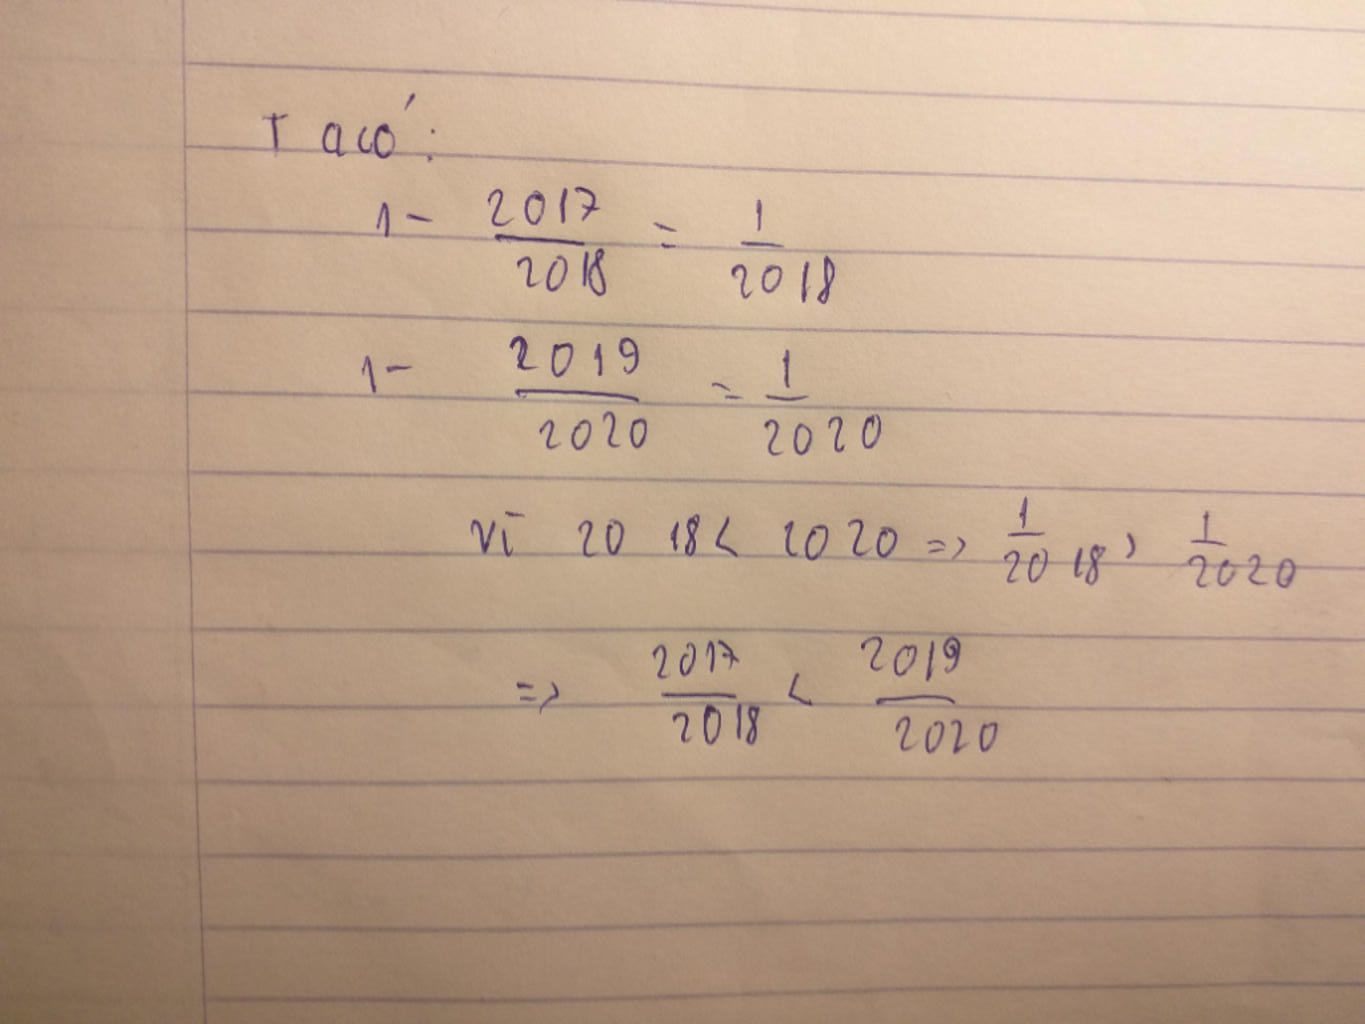 Ta có:
1 - 2017/2018 = 1/2018
1 - 2019/2020 = 1/2020
vì 2018 < 2020 => 1/2018 > 1/2020
=> 2017/2018 < 2019/2020